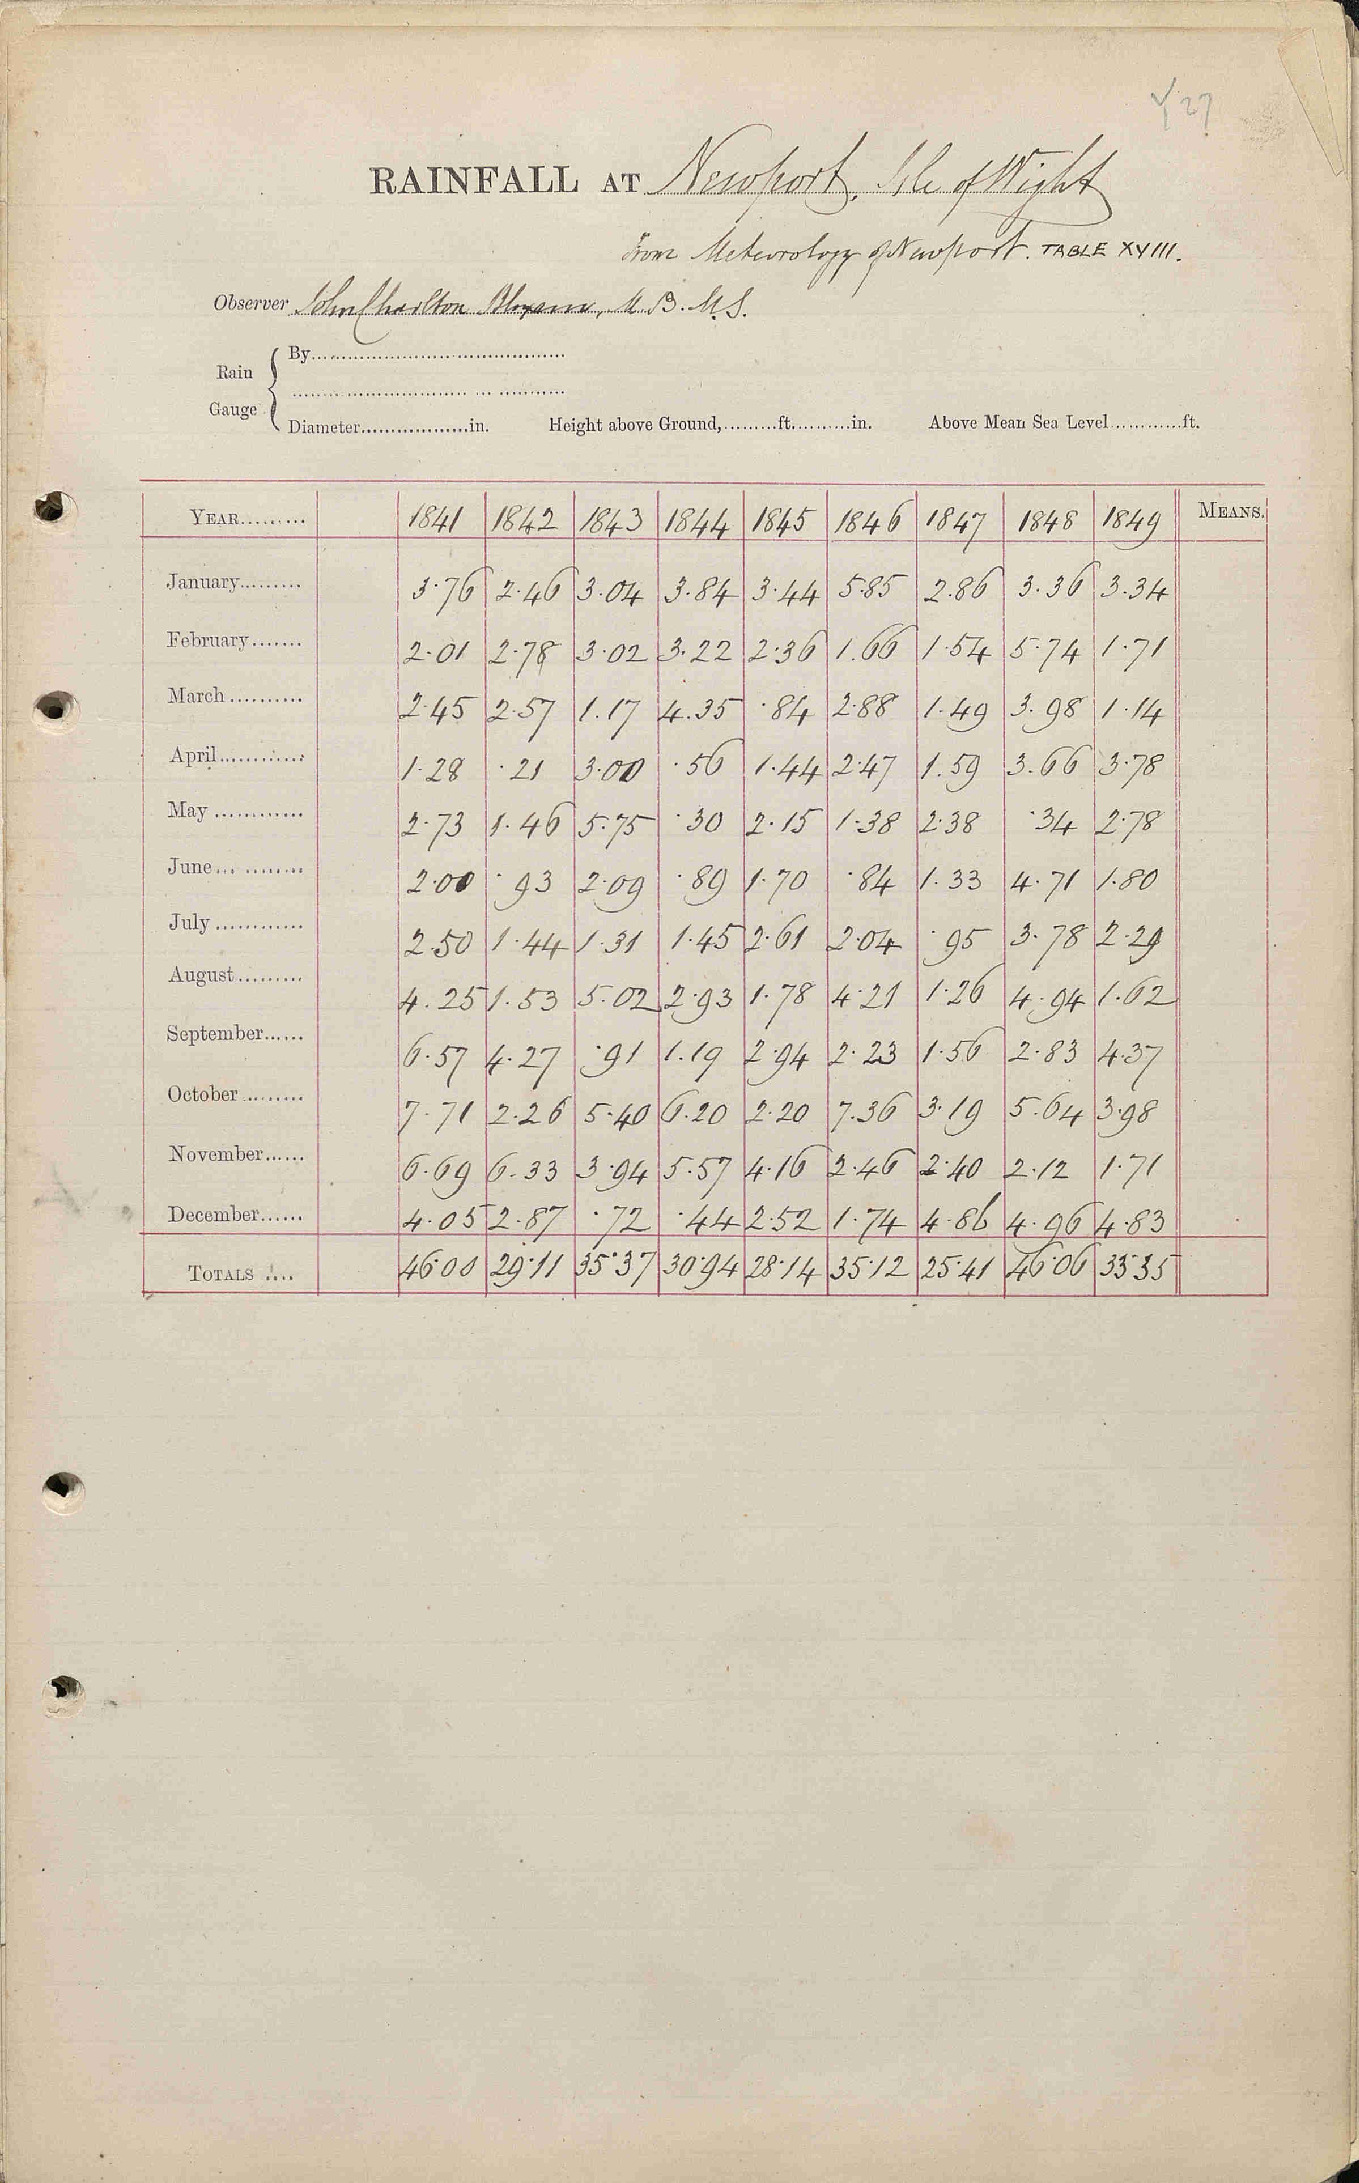 Y 27
RAINFALL AT Newport, Isle of Wight
From Meteorology of Newport. TABLE XVIII.
Observer John Charlton Bloxam, M.B. M.S.
Rain Gauge { By
Diameter in. Height above Ground, ft. in. Above Mean Sea Level ft.
YEAR 1841 1842 1843 1844 1845 1846 1847 1848 1849 MEANS.
January 3.76 2.46 3.04 3.84 3.44 5.85 2.86 3.36 3.34
February 2.01 2.78 3.02 3.22 2.36 1.66 1.54 5.74 1.71
March 2.45 2.57 1.17 4.35 .84 2.88 1.49 3.98 1.14
April 1.28 .21 3.00 .56 1.44 2.47 1.59 3.66 3.78
May 2.73 1.46 5.75 .30 2.15 1.38 2.38 .34 2.78
June 2.00 .93 2.09 .89 1.70 .84 1.33 4.71 1.80
July 2.50 1.44 1.31 1.45 2.61 2.04 .95 3.78 2.29
August 4.25 1.53 5.02 2.93 1.78 4.21 1.26 4.94 1.62
September 6.57 4.27 .91 1.19 2.94 2.23 1.56 2.83 4.37
October 7.71 2.26 5.40 6.20 2.20 7.36 3.19 5.64 3.98
November 6.69 6.33 3.94 5.57 4.16 2.46 2.40 2.12 1.71
December 4.05 2.87 .72 .44 2.52 1.74 4.86 4.96 4.83
TOTALS 46.00 29.11 35.37 30.94 28.14 35.12 25.41 46.06 33.35